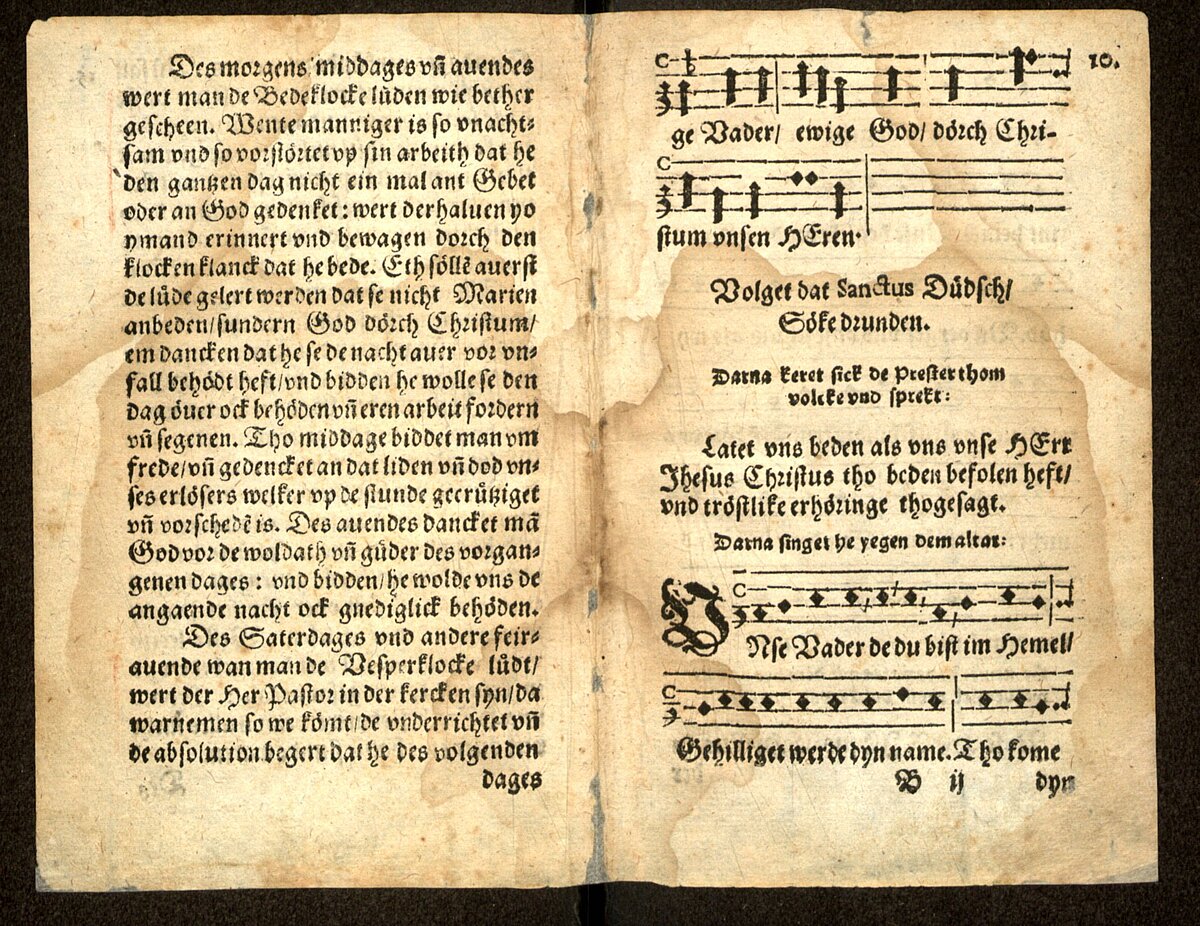 Des morgens middages vñ auendes
wert man de Bedeklocke lüden wie bether
gescheen. Wente manniger is so vnacht⸗
sam vnd so vorstörtet vp sin arbeith dat he
den gantzen dag nicht ein mal ant Gebet
oder an God gedenket: wert derhaluen yo
ymand erinnert vnd bewagen dorch den
klocken klanck dat he bede. Eth söllē auerst
de lüde gelert werden dat se nicht Marien
anbeden/sundern God dörch Christum/
em dancken dat he se de nacht auer vor vn⸗
fall behödt heft/vnd bidden he wolle se den
dag öuer ock behöden vñ eren arbeit fordern
vñ segenen. Tho middage biddet man vm
frede/vñ gedencket an dat liden vñ dod vn⸗
ses erlösers welker vp de stunde gecrütziget
vñ vorschedē is. Des auendes dancket mā
God vor de woldath vñ güder des vorgan⸗
genen dages: vnd bidden/he wolde vns de
angaende nacht ock gnediglick behöden.
Des Saterdages vnd andere feir⸗
auende wan man de Vesperklocke lüdt/
wert der Her Pastor in der kercken syn/da
warnemen so we kömt/de vnderrichtet vñ
de absolution begert dat he des volgenden
dages
10.
ge Vader/ ewige God/ dörch Chri-
stum vnsen HEren.
Volget dat Sanctus Düdsch/
Söke drunden.
Darna keret sick de Prester thom
volcke vnd sprekt:
Latet vns beden als vns vnse HErr
Jhesus Christus tho beden befolen heft/
vnd tröstlike erhöringe thogesagt.
Darna singet he yegen dem altar:
VNse Vader de du bist im Hemel/
Gehilliget werde dyn name. Tho kome
B ij dyn